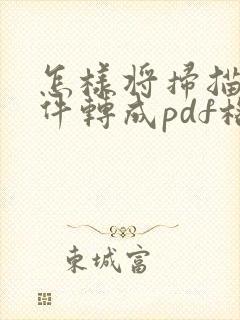 怎樣将掃描
件轉成pdf格
東城富